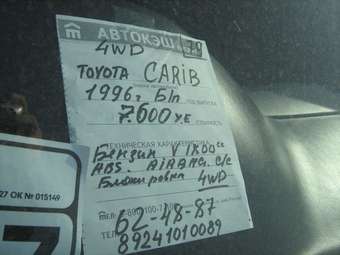 АВТОКЭШ
4WD
TOYOTA CARiB
1996г. Б/п
7600 УЕ
ТЕХНИЧЕСКАЯ ХАРАКТЕРИСТИКА
Бензин V 1800сс
ABS. AiRBAG. С/С
Блокировка 4WD
62-48-87
89241010089
27 ОК № 015149